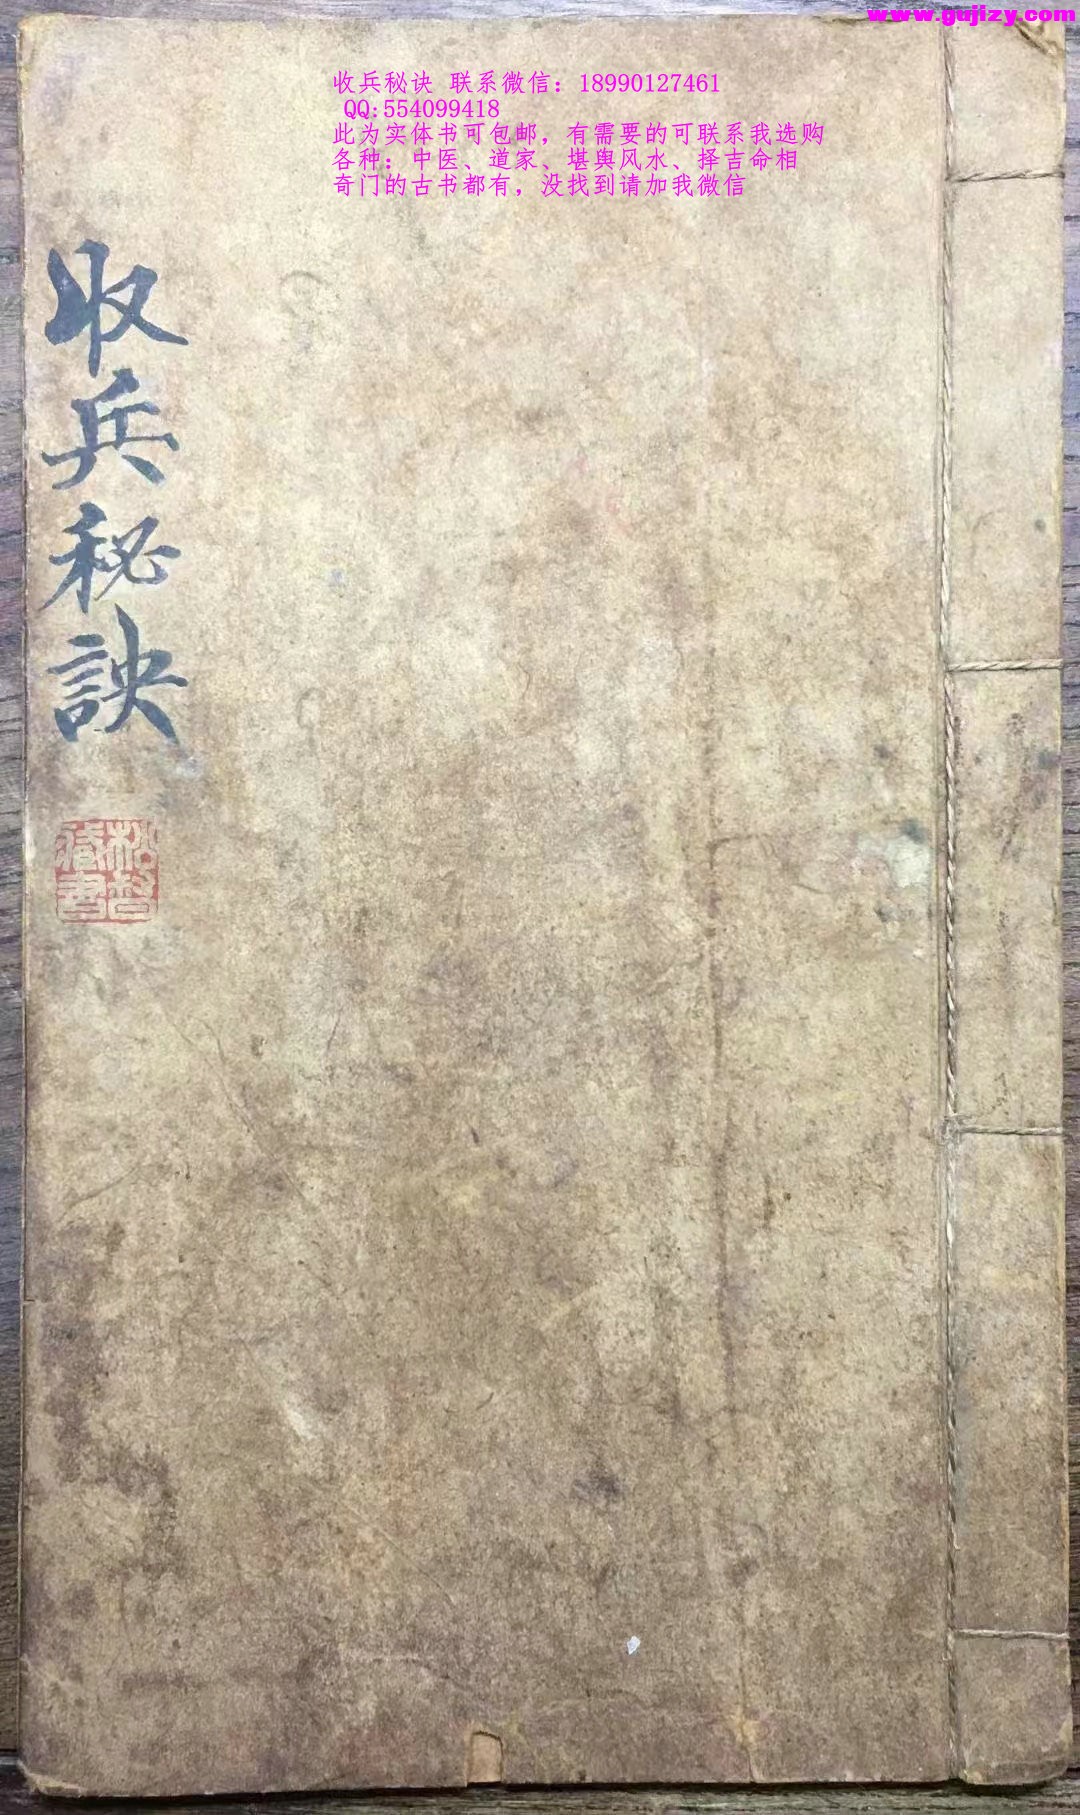 www.gujizy.com
收兵秘诀 联系微信：18990127461
QQ:554099418
此为实体书可包邮，有需要的可联系我选购
各种：中医、道家、堪舆风水、择吉命相
奇门的古书都有，没找到请加我微信
收兵秘訣